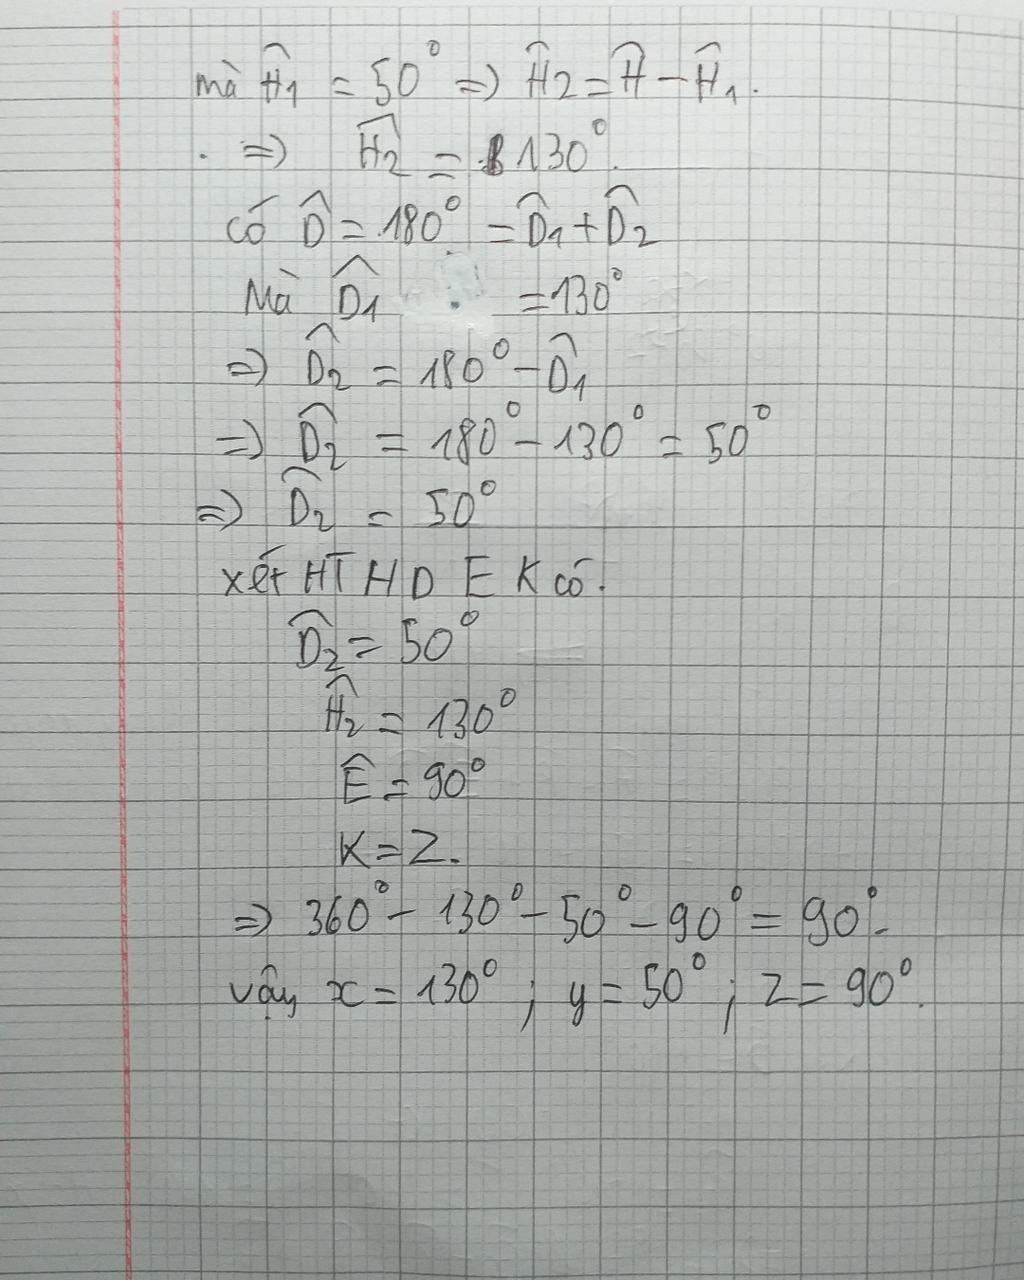 mà Ĥ₁ = 50° => Ĥ₂ = Ĥ - Ĥ₁.
. => Ĥ₂ = 130°.
có D̂ = 180° = D̂₁ + D̂₂
Mà D̂₁ = 130°
=> D̂₂ = 180° - D̂₁
=> D̂₂ = 180° - 130° = 50°
=> D̂₂ = 50°
xét HT HDEK có.
D̂₂ = 50°
Ĥ₂ = 130°
Ê = 90°
K = Z.
=> 360° - 130° - 50° - 90° = 90°.
vậy x = 130° ; y = 50° ; z = 90°.